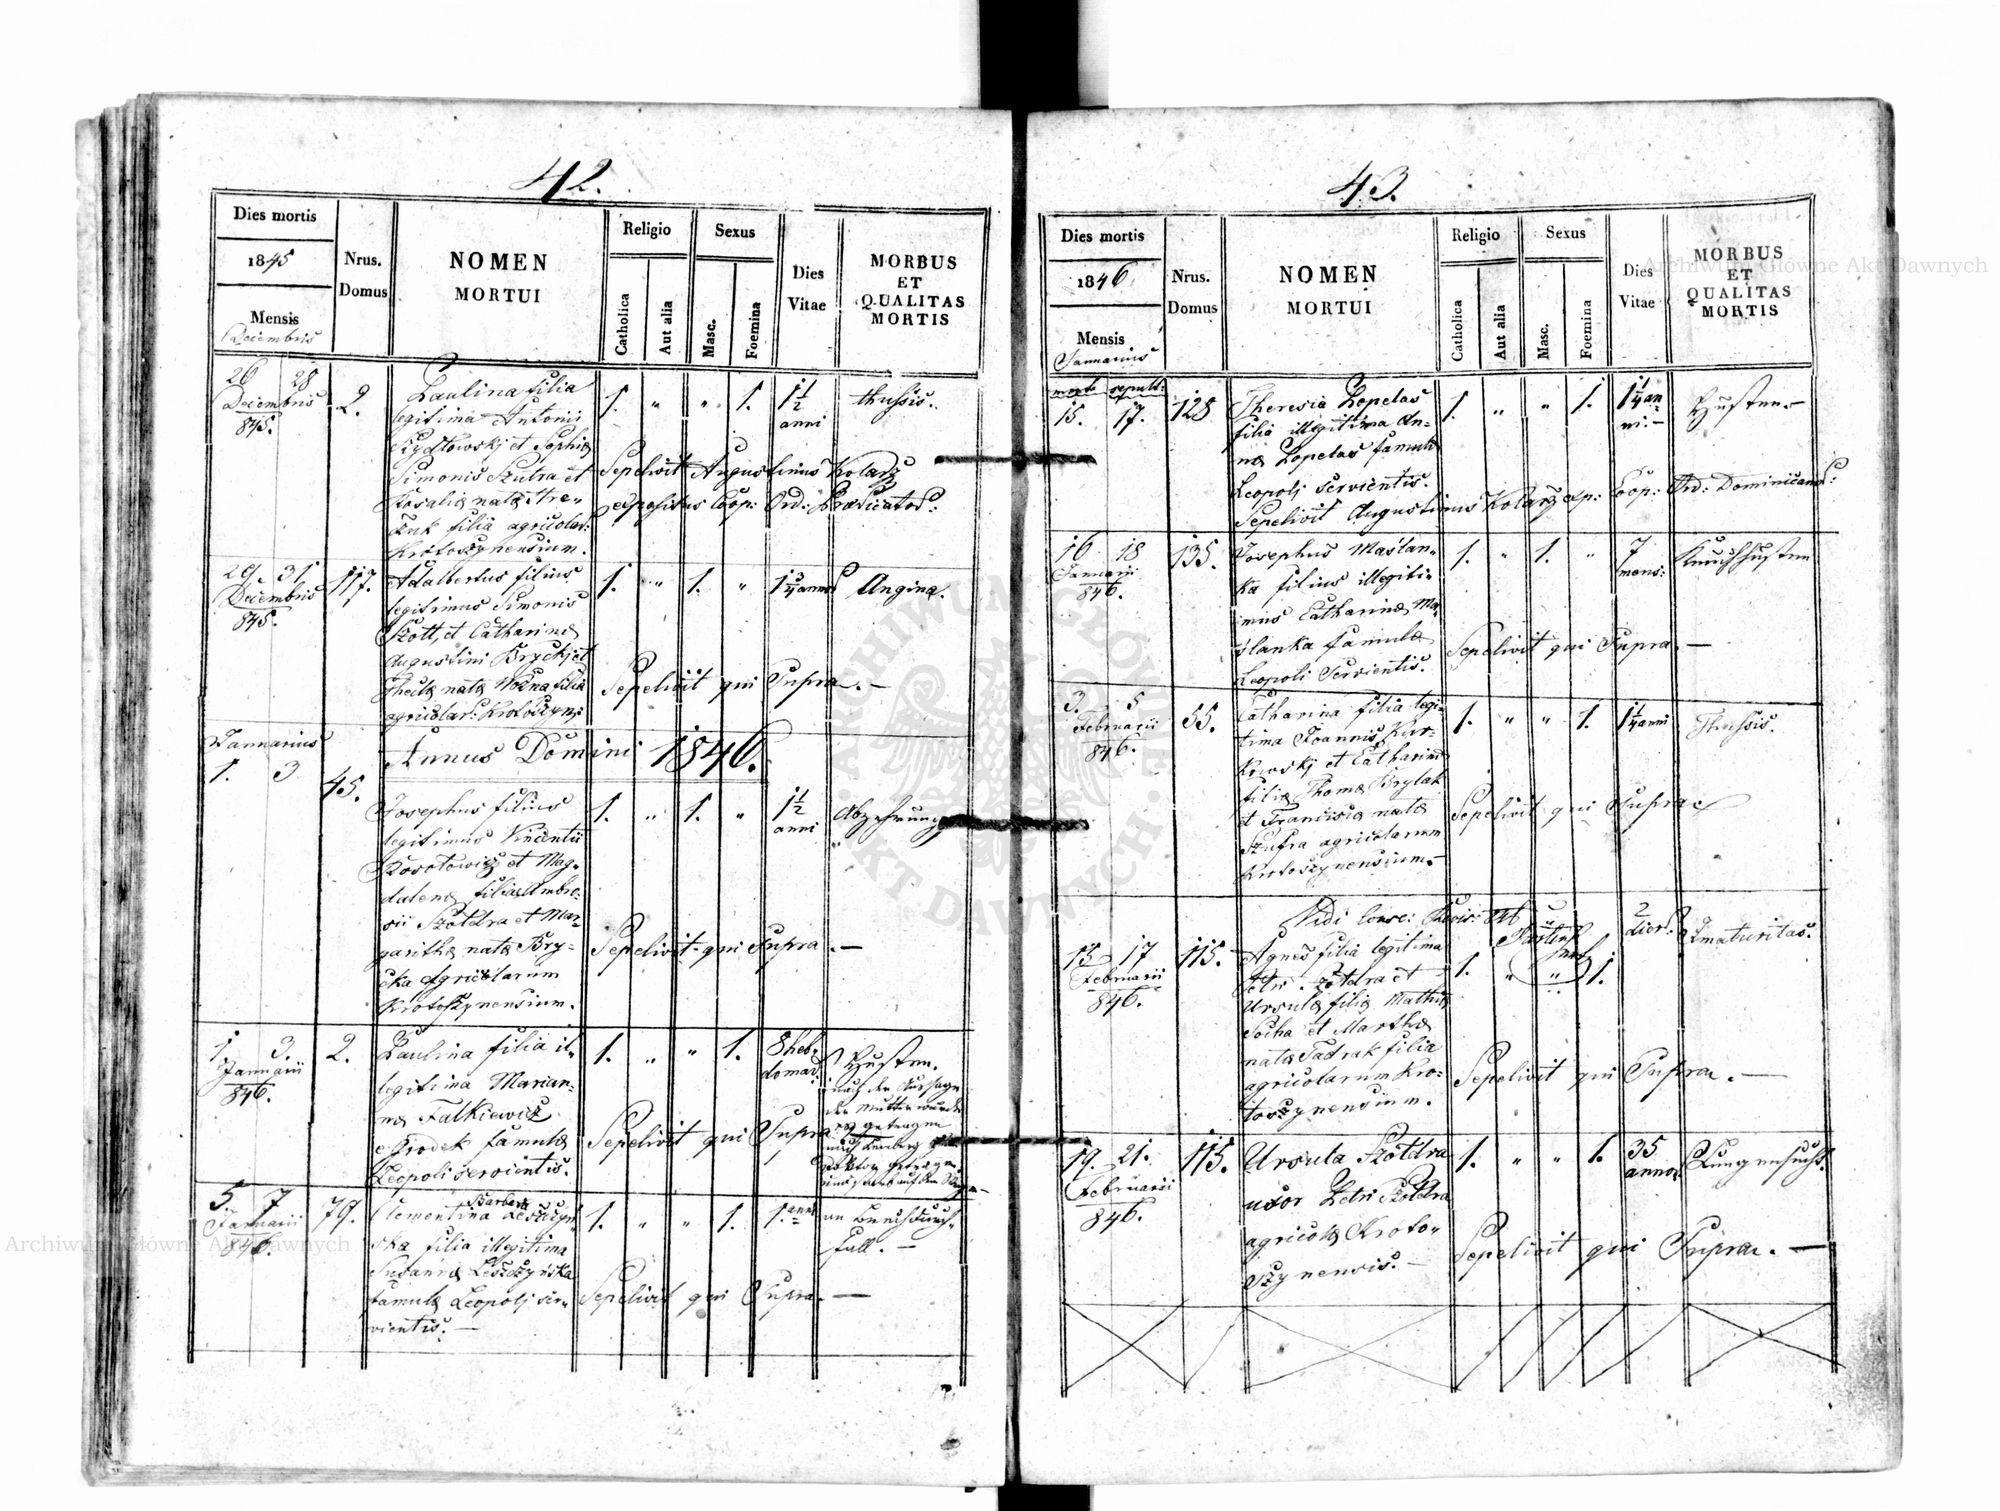 42.
Dies mortis
1845
Mensis
Decembris
Nrus.
Domus
NOMEN
MORTUI
Religio
Catholica
Aut alia
Sexus
Masc.
Foemina
Dies
Vitae
MORBUS
ET
QUALITAS
MORTIS
26 28
Decembris
845.
2.
Paulina filia
legitima Antonii
et Sophiæ
Simonis Szutra et
Rosaliæ natæ
filia agricolar:
Krotoszynensium.
1. " " 1.
1 1/2
anni
thussis.
Sepelivit Augustinus Kolarz
expositus Coop: Ord: Prædicator:
29. 31
Decembris
845.
117.
Adalbertus filius
legitimus Simonis
Szott, et Catharinæ
Augustini Bryckj et
Theclæ natæ Wozna filia
agricolar: Krotoszyn:
1. " 1. "
1 3/4 annor
Angina.
Sepelivit qui Supra. —
Annus Domini 1846.
Januarius
1. 3
45.
Josephus filius
legitimus Vincentii
Korotowicz et Mag-
dalenæ filiæ Ambro-
sii Szotdra et Mar-
garithæ natæ Bry-
cka Agricolarum
Krotoszynensium.
1. " 1. "
1 1/2
anni
Abzehrung
Sepelivit qui Supra. —
1 3.
Januarii
846.
2.
Paulina filia il-
legitima Marian-
næ Falkiewicz
e Grodek famulæ
Leopoli servientis.
1. " " 1.
8 heb-
domad.
Husten.
nach der Aussage
der Mutter wurde
es getragen
nach Lemberg
Doktor
und starb auf dem Wege —
Sepelivit qui Supra
5. 7
Januarii
846.
79.
Barbara
Clementina Leszczyń-
ska filia illegitima
Susannæ Leszczyńska
famulæ Leopolj ser-
vientis. —
1. " " 1.
1. anni
an Bruchdurch-
fall. —
Sepelivit qui Supra. —
43.
Dies mortis
1846
Mensis
Januarius
Nrus.
Domus
NOMEN
MORTUI
Religio
Catholica
Aut alia
Sexus
Masc.
Foemina
Dies
Vitae
MORBUS
ET
QUALITAS
MORTIS
morte sepult:
15. 17.
128
Theresia Lopelas
filia illegitima An-
næ Lopelas famulæ
Leopolj servientis.
1. " " 1.
1 1/4 an-
ni. —
Husten. —
Sepelivit Augustinus Kolarz exp: Coop: Ord: Dominicanor:
16 18
Januarii
846.
135.
Josephus Maślan-
ka filius illegiti-
mus Catharinæ Ma-
ślanka famulæ
Leopoli Servientis.
1. " 1. "
7
mens:
Keuchhusten
Sepelivit qui Supra. —
3 5
Februarii
846.
55.
Catharina filia legi-
tima Joannis Kur-
kowskj et Catharinæ
filiæ Thomæ Brylak
et Franciscæ natæ
Szufra agricolarum
Krotoszynensium. —
1. " " 1.
1 1/4 anni
Thussis.
Sepelivit qui Supra
Vidi Cour: 846
15 17
Februarii
846.
115.
Agnes filia legitima
Petri Szotdra et
Ursulæ filiæ Mathiæ
Socha et Marthæ
natæ Tadrak filia
agricolarum Kro-
toszynensium.
1. " " 1.
2
dier.
Imaturitas.
Sepelivit qui Supra. —
19. 21.
Februarii
846.
115.
Ursula Szotdra
uxor Petri Szotdra
agricolæ Kroto-
szynensis. —
1. " " 1.
35
annor
Lungensucht.
Sepelivit qui Supra. —
Archiwum Główne Akt Dawnych
Archiwum Główne Akt Dawnych
ARCHIWUM GŁÓWNE
AKT DAWNYCH